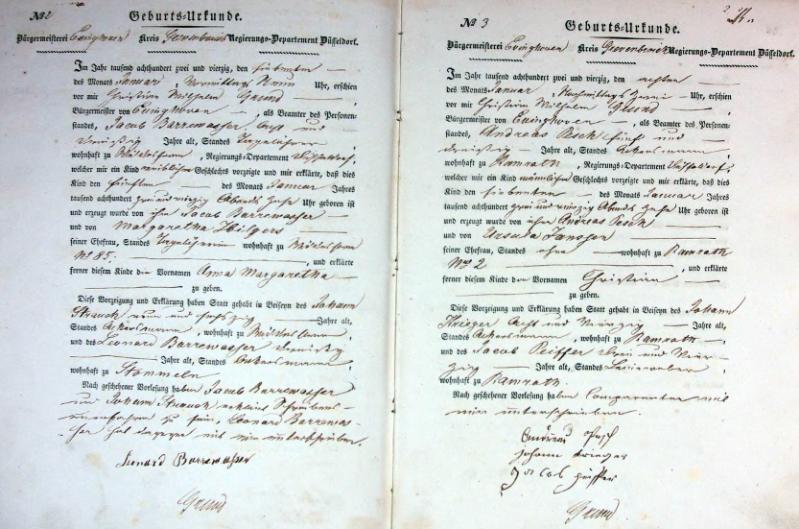 No 2
Geburts-Urkunde.
Bürgermeisterei Evinghoven Kreis Grevenbroich Regierungs-Departement Düsseldorf.
Im Jahr tausend achthundert zwei und vierzig, den siebenten
des Monats Januar Vormittags Uhr, erschien
vor mir Christian Wilhelm Grund
Bürgermeister von Evinghoven, als Beamter des Personen-
standes, Jacob Barrewasser und
dreißig Jahre alt, Standes Tagelöhner
wohnhaft zu Regierungs-Departement Düsseldorf,
welcher mir ein Kind weiblichen Geschlechts vorzeigte und mir erklärte, daß dies
Kind den fünften des Monats Januar Jahres
tausend achthundert zwei und vierzig Abends Uhr geboren ist
und erzeugt wurde von ihm Jacob Barrewasser
und von Margaretha Hilgers
seiner Ehefrau, Standes wohnhaft zu
No 85. und erklärte
ferner diesem Kinde die Vornamen Anna Margaretha
zu geben.
Diese Vorzeigung und Erklärung haben Statt gehabt in Beiseyn des Johann
Strauch und Jahre alt,
Standes Ackersmann, wohnhaft zu
und des Leonard Barrewasser dreißig
Jahre alt, Standes Ackersmann
wohnhaft zu Stommeln
Nach geschehener Vorlesung haben Jacob Barrewasser
und Johann Strauch
zu sein, Leonard Barrewas-
ser hat dagegen mit mir unterschrieben.
Leonard Barrewasser
Grund
No 3
Geburts-Urkunde.
Bürgermeisterei Evinghoven Kreis Grevenbroich Regierungs-Departement Düsseldorf.
Im Jahr tausend achthundert zwei und vierzig, den achten
des Monats Januar Nachmittags Uhr, erschien
vor mir Christian Wilhelm Grund
Bürgermeister von Evinghoven, als Beamter des Personen-
standes, Andreas Pesch fünf und
dreißig Jahre alt, Standes Ackersmann
wohnhaft zu Ramrath, Regierungs-Departement Düsseldorf,
welcher mir ein Kind männlichen Geschlechts vorzeigte und mir erklärte, daß dies
Kind den siebenten des Monats Januar Jahres
tausend achthundert zwei und vierzig Abends Uhr geboren ist
und erzeugt wurde von ihm Andreas Pesch
und von Ursula
seiner Ehefrau, Standes ohne wohnhaft zu Ramrath
No 2 und erklärte
ferner diesem Kinde den Vornamen Christian
zu geben.
Diese Vorzeigung und Erklärung haben Statt gehabt in Beiseyn des Johann
Krieger acht und vierzig Jahre alt,
Standes Ackersmann, wohnhaft zu Ramrath
und des Jacob Peiffer drei und vier-
zig Jahre alt, Standes
wohnhaft zu Ramrath.
Nach geschehener Vorlesung haben Comparenten mit
mir unterschrieben.
Pesch
Johann Krieger
Jacob Peiffer
Grund